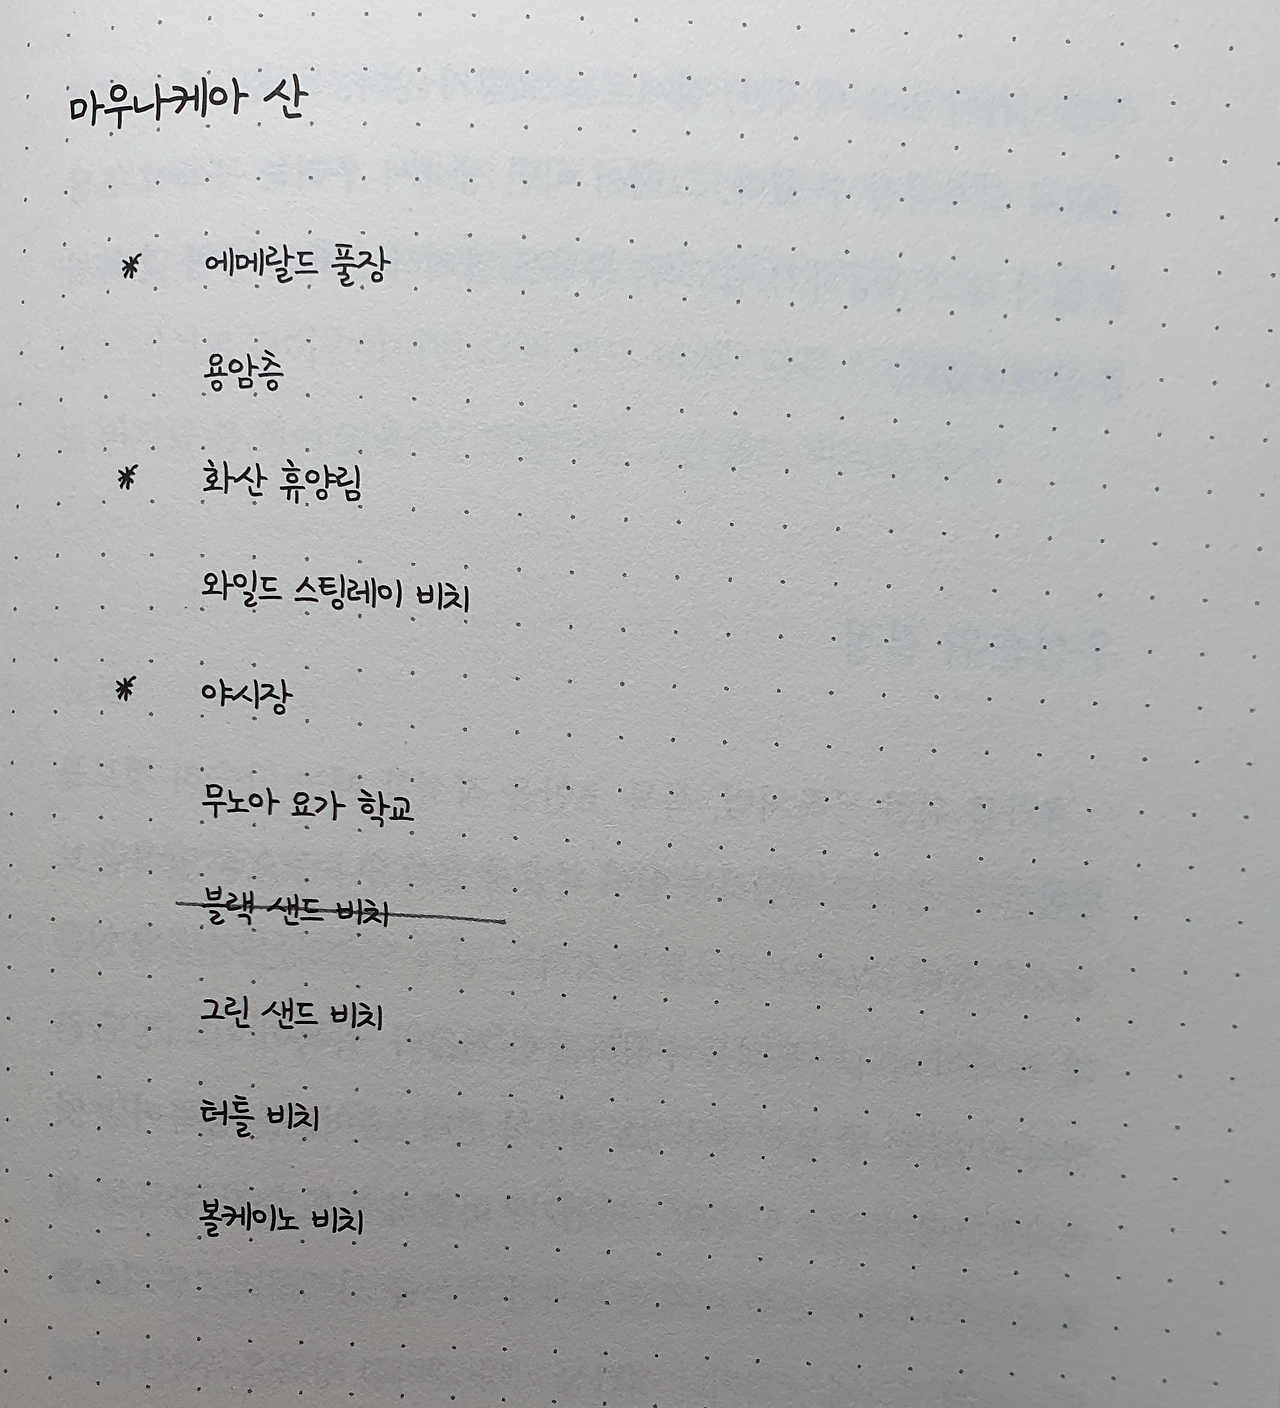 마우나케아 산
* 에메랄드 풀장
용암층
* 화산 휴양림
와일드 스팅레이 비치
* 야시장
무노아 요가 학교
블랙 샌드 비치
그린 샌드 비치
터틀 비치
볼케이노 비치